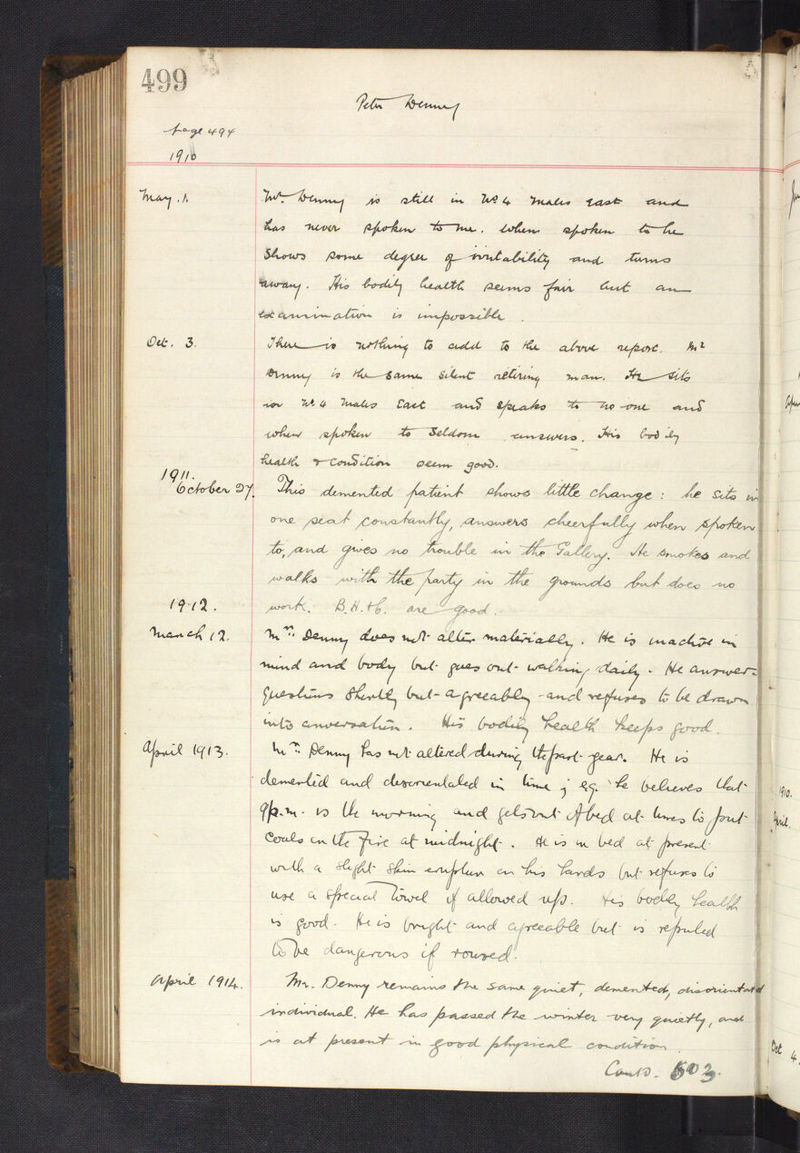 499
Peter Denny
page 494
1910
May. 1. Mr. Denny is still in No 4 Males East and
has never spoken to me. When spoken to he
shows some degree of irritability and turns
away. His bodily health seems fair but an
examination is impossible.
Oct. 3. There is nothing to add to the above report. Mr
Denny is the same silent retiring man. He sits
in No 4 Males East and speaks to no one and
when spoken to seldom answers. His bodily
health & condition seem good.
1911.
October 27. This demented patient shows little change: he sits in
one seat constantly, answers cheerfully when spoken
to, and gives no trouble in the Gallery. He smokes and
walks with the party in the grounds but does no
work. B.H.&C. are good.
1912.
March 12. Mr. Denny does not alter materially. He is inactive in
mind and body but goes out walking daily. He answers
questions shortly but agreeably and refuses to be drawn
into conversation. His bodily health keeps good.
April 1913. Mr. Denny has not altered during the past year. He is
demented and disorientated in time; eg. he believes that
9p.m. is the morning and gets out of bed at times to put
coals on the fire at midnight. He is in bed at present
with a slight skin eruption on his hands but refuses to
use a special towel if allowed up. His bodily health
is good. He is bright and agreeable but is reputed
to be dangerous if roused.
April 1914. Mr. Denny remains the same quiet, demented, disorientated
individual. He has passed the winter very quietly, and
is at present in good physical condition.
Contd. 503
1910.
April
Oct 4.